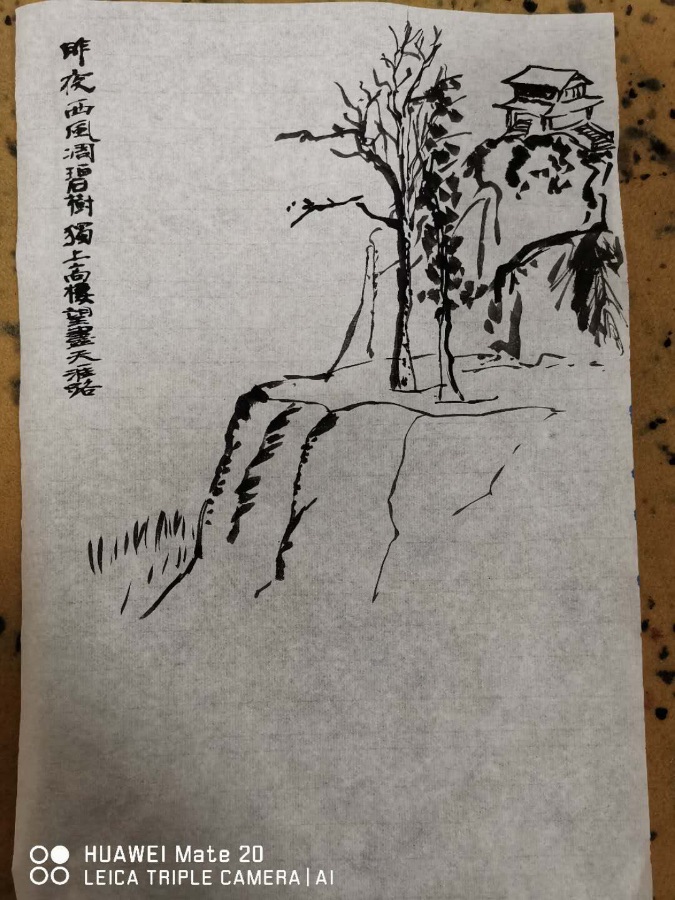 昨夜西風凋碧樹獨上高樓望盡天涯路
HUAWEI Mate 20
LEICA TRIPLE CAMERA | AI